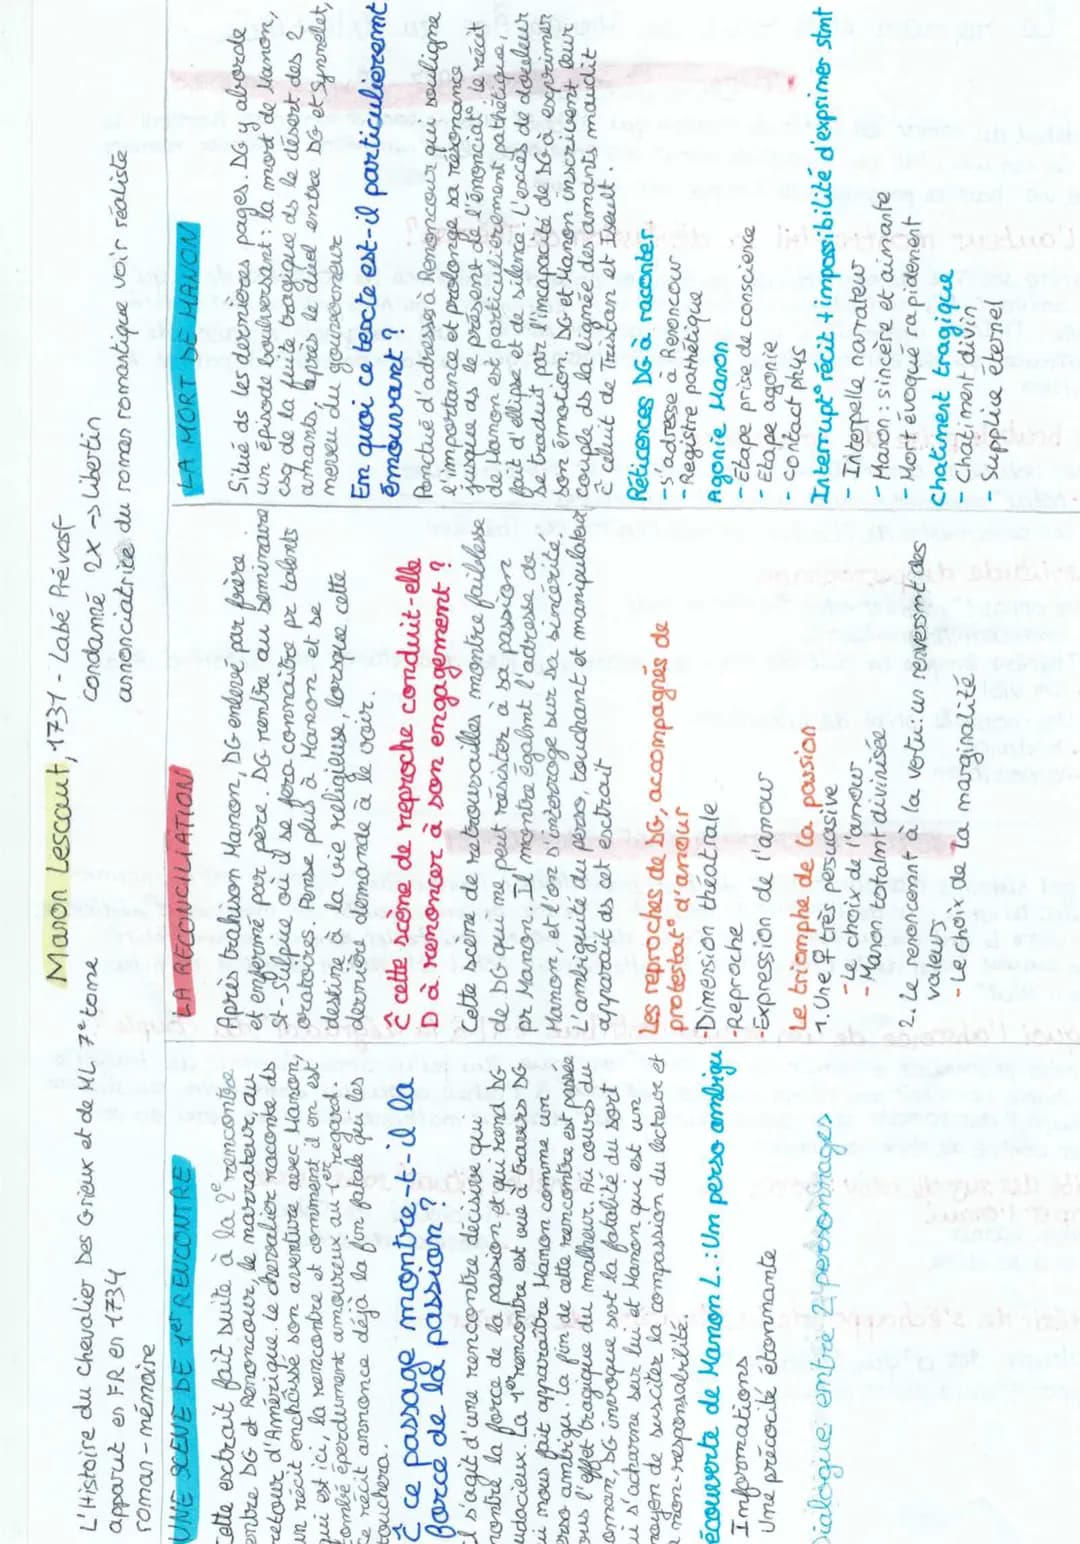 Manon Lescaut, 1731 - L'abé Prévost
L'Histoire du Chevalier Des Grieux et de M.L. 7e tome
apparut en FR en 1734
roman-mémoire
condamné 2x -> libertin
annonciatrice du roman romantique voir réaliste
UNE SCENE DE 1ère RENCONTRE
Cette extrait fait suite à la 2e rencontre
entre DG et Renoncour, le narrateur, au
retour d'Amérique. le chevalier raconte ds
un récit enchâssé son aventure avec Manon
qui est ici, la rencontre et comment il en est
tombé éperdument amoureux au 1er regard.
Ce récit annonce déjà la fin fatale qui les
touchera.
Ê ce passage montre-t-il la
force de la passion?
Il s'agit d'une rencontre décisive qui
montre la force de la passion et qui rend DG
audacieux. La 1ère rencontre est vue à travers DG
qui nous fait apparaître Manon comme un
perso ambigu. La fin de cette rencontre est passée
sous l'effet tragique du malheur. Au cours du
roman, DG invoque svt la fatalité du sort
qui s'acharne sur lui et Manon que est un
moyen de susciter la compassion du lecteur et
la non-responsabilité.
écouverte de Manon L.: Un perso ambigu
Informations
Une précocité étonnante
Dialogue entre 2 personnages
LA RECONCILIATION
Après trahison Manon, DG enlevé par frère
et enfermé par père. DG rentre au Seminaire
st-Sulpice où il se fera connaître pr talents
oratoire. Ne pense plus à Manon et se
destine à la vie religieuse, lorsque cette
dernière, demande à le voir.
Ê cette scène de reproche conduit-elle
D à renoncer à son engagement?
Cette scène de retrouvailles montre faiblesse
de DG qui ne peut résister à sa passion
pr Manon. Il montre égalmt l'adresse de
Manon et l'on s'interroge sur sa sincérité.
L'ambiguïté du perso, touchant et manipulateur
apparaît ds cet extrait
Les reproches de DG, accompagnés de
protestat° d'amour
- Dimension théâtrale
- Reproche
- Expression de l'amour
Le triomphe de la passion
1. Une ♀ très persuasive
- le choix de l'amour
- Manon totalmt divinisée
2. Le renoncemt à la vertu: un renversmt des
valeurs
- Le choix de la marginalité
LA MORT DE MANON
Situé ds les dernières pages. DG y aborde
un épisode bouleversant: la mort de Manon,
csq de la fuite tragique ds le désert des 2
amants, après le duel entre DG et Synnelet,
neveu du gouverneur
En quoi ce texte est-il particulièremt
émouvant?
Penctué d'adresse à Renoncour qui souligne
l'importance et prolonge sa résonance
jusque ds le présent de l'énonciat°, le récit
de Manon est particulièrement pathétique,
fait d'ellipse et silence. L'excès de douleur
se traduit par l'incapacité de DG à exprimer
son émotion. DG et Manon inscrivent leur
couple ds la lignée des amants maudit
Ê celuit de Tristan et Iseult.
Réticences DG à raconter
- S'adresse à Renoncour
- Registre pathétique
Agonie Manon
- Étape prise de conscience
- Étape agonie
- Contact phys
Interrupt° récit + impossibilité d'exprimer stmt
- Interpelle narrateur
- Manon: sincère et aimante
- Mort évoquée rapidement
Chatiment tragique
- Chatiment divin
- Supplice éternel